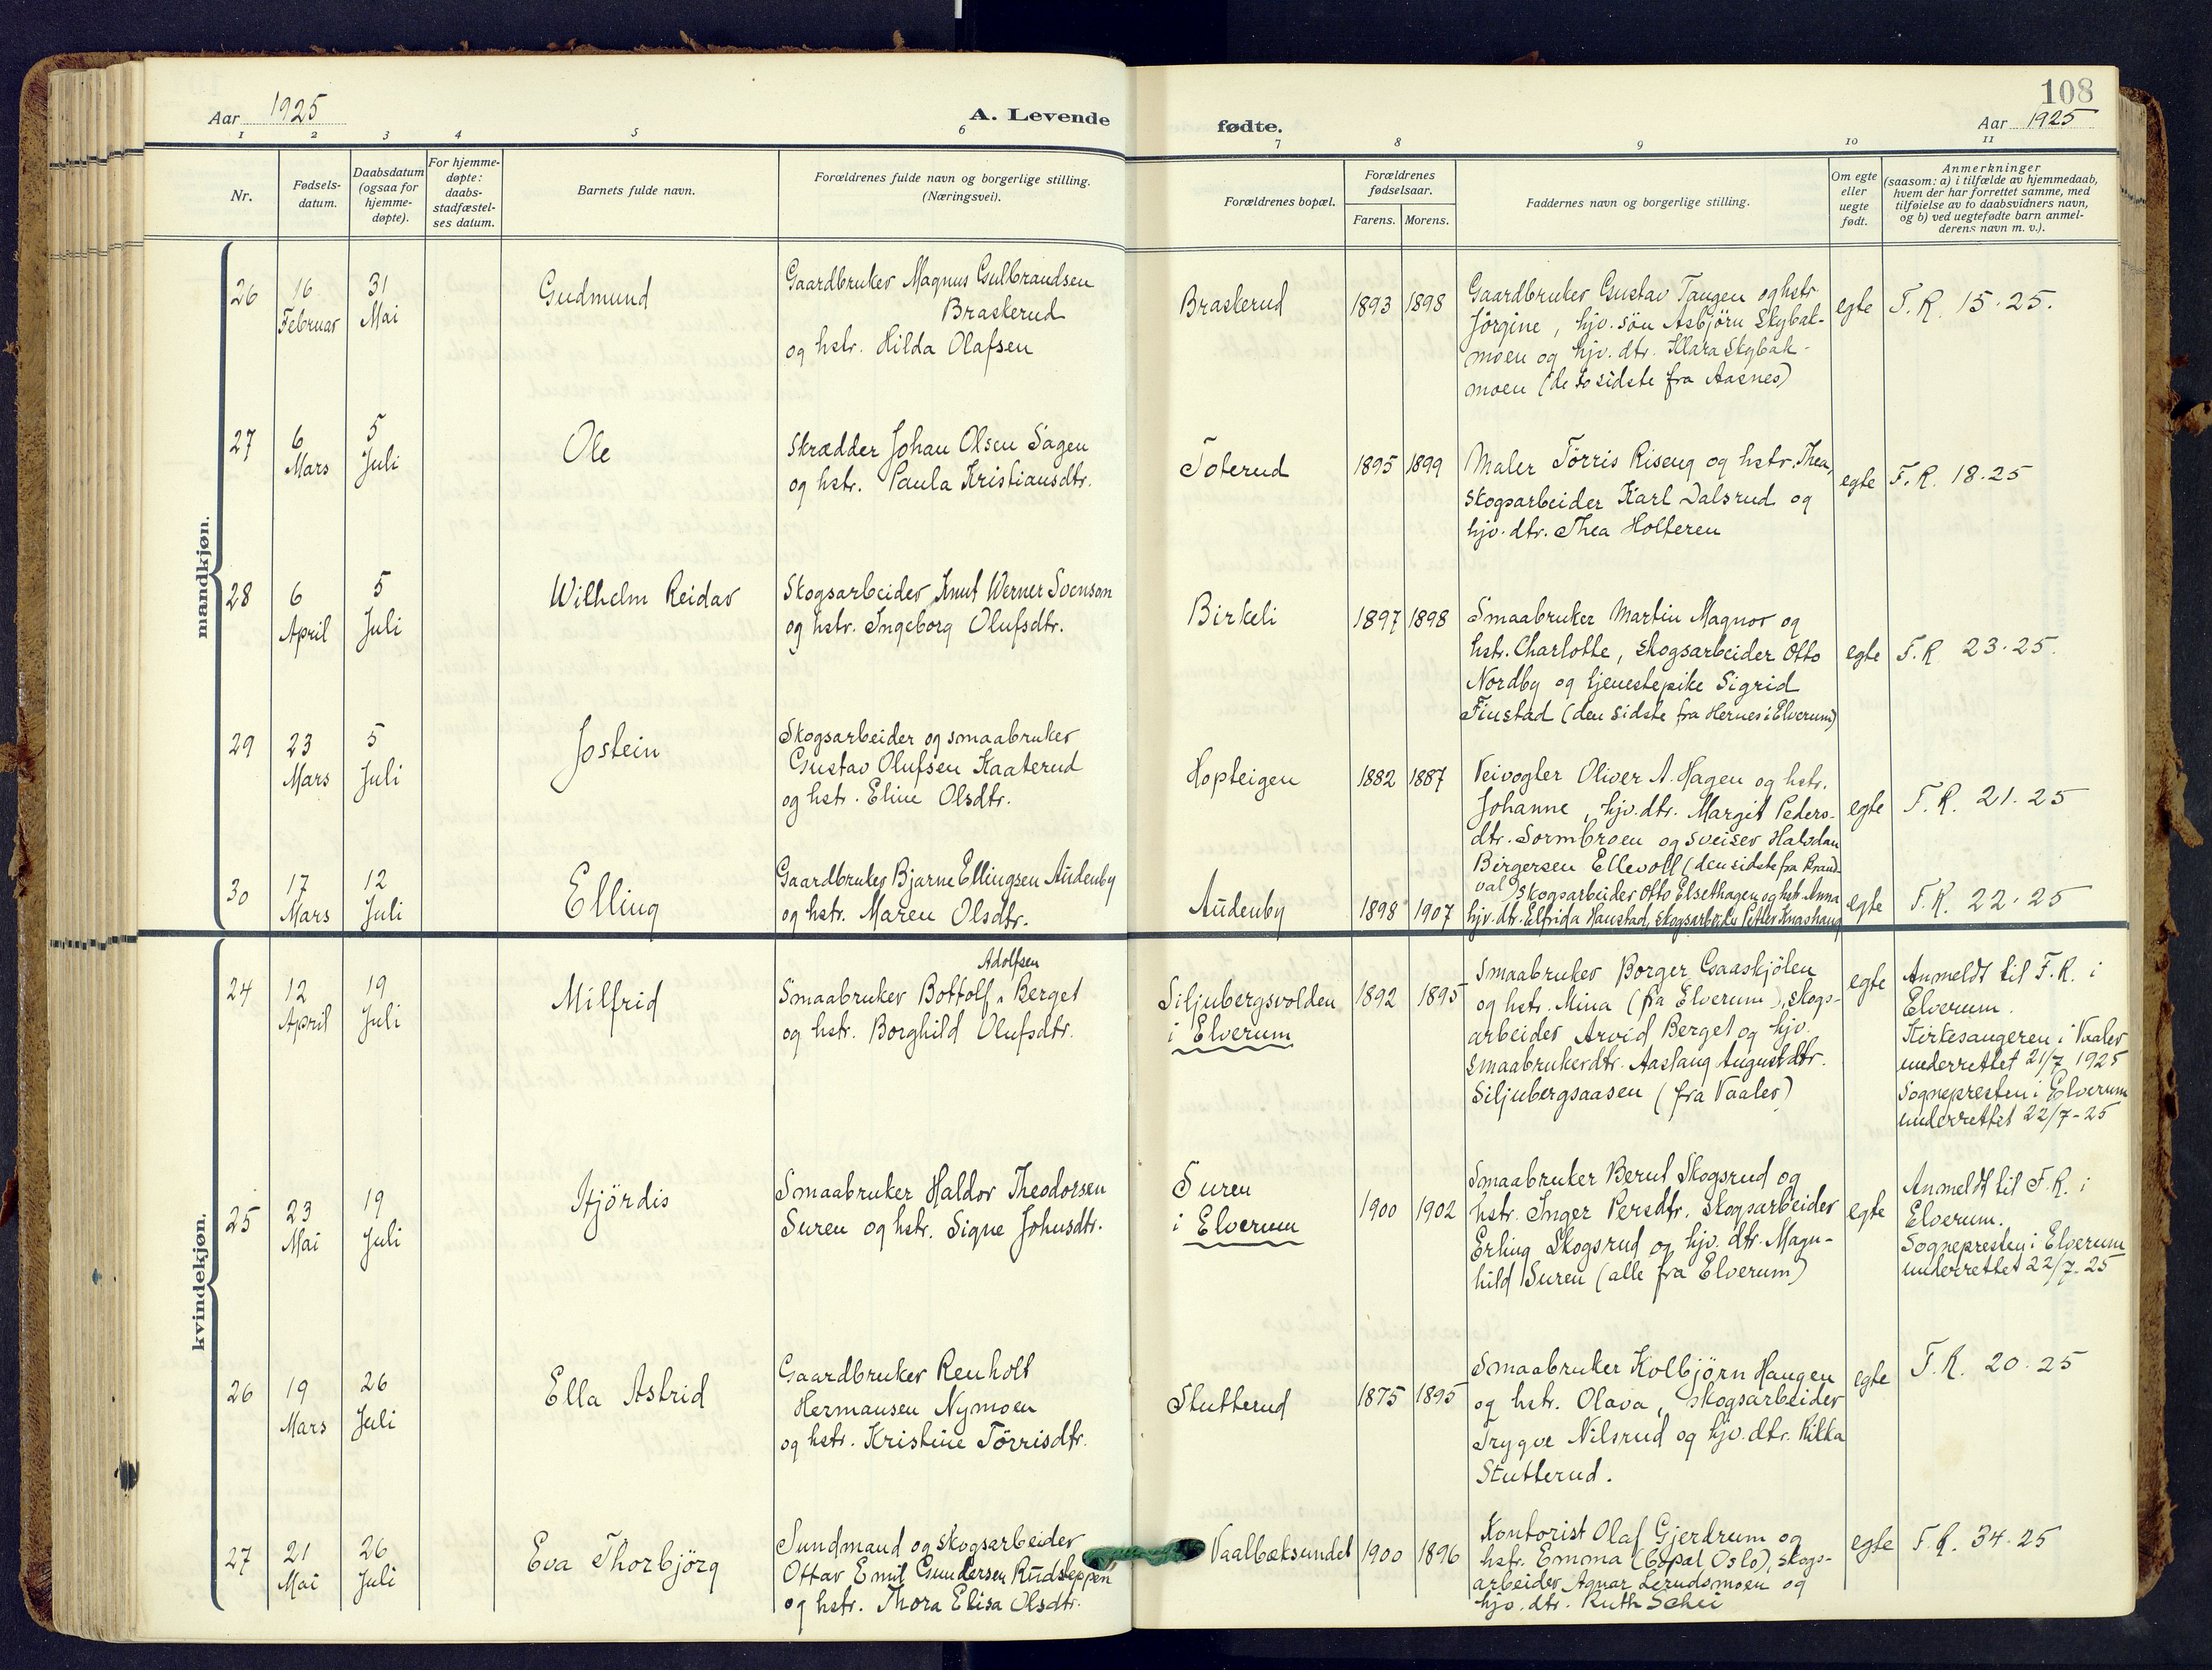 108
Aar 1925
A. Levende
fødte.
Aar 1925
1 2 3 4 5 6 7 8 9 10 11
Nr.
Fødsels-
datum.
Daabsdatum
(ogsaa for
hjemme-
døpte).
For hjemme-
døpte:
daabs-
stadfæstel-
ses datum.
Barnets fulde navn.
Forældrenes fulde navn og borgerlige stilling.
(Næringsvei).
Forældrenes bopæl.
Forældrenes
fødselsaar.
Farens. Morens.
Faddernes navn og borgerlige stilling.
Om egte
eller
uegte
født.
Anmerkninger
(saasom: a) i tilfælde av hjemmedaab,
hvem der har forrettet samme, med
tilføielse av to daabsvidners navn,
og b) ved uegtefødte barn anmel-
derens navn m. v.).
mandkjøn.
26
16
Februar
31
Mai
Gudmund
Gaardbruker Magnus Gulbrandsen
Braskerud
og hstr. Hilda Olafsen
Braskerud
1893 1898
Gaardbruker Gustav Tangen og hstr
Jörgine, hjv. sön Asbjörn Skybak-
moen og hjv. dtr. Klara Skybak-
moen (de to sidste fra Aasnes)
egte
F.R. 15.25.
27
6
Mars
5
Juli
Ole
Skrædder Johan Olsen Sagen
og hstr. Paula Kristiansdtr.
Toterud
1895 1899
Maler Törris Riseng og hstr. Thea,
skogsarbeider Karl Dalsrud og
hjv. dtr. Thea Holteren
egte
F.R. 18.25
28
6
April
5
Juli
Wilhelm Reidar
Skogsarbeider Knut Werner Svenson
og hstr. Ingeborg Olufsdtr.
Birkeli
1897 1898
Smaabruker Martin Magnor og
hstr. Charlotte, skogsarbeider Otto
Nordby og tjenestepike Sigrid
Finstad (den sidste fra Hernes i Elverum)
egte
F.R. 23.25.
29
23
Mars
5
Juli
Jostein
Skogsarbeider og smaabruker
Gustav Olufsen Kaaterud
og hstr. Eline Olsdtr.
Hopteigen
1882 1887
Veivogter Oliver A. Hagen og hstr.
Johanne, hjv. dtr. Margit Peders-
dtr. Sormbroen og sveiser Halvdan
Birgersen Ellevoll (den sidste fra Brand-
val)
egte
F.R. 21.25
30
17
Mars
12
Juli
Elling
Gaardbruker Bjarne Ellingsen Audenby
og hstr. Maren Olsdtr.
Audenby
1898 1907
Skogsarbeider Otto Elsethagen og hst. Anna
hjv. dtr. Elfrida Hanstad, skogsarbeider Petter Knashaug
egte
F.R. 22.25
kvindekjøn.
24
12
April
19
Juli
Milfrid
Adolfsen
Smaabruker Bottolf Berget
og hstr. Borghild Olufsdtr.
Siljubergsvolden
i Elverum
1892 1895
Smaabruker Borger Gaaskjölen
og hstr. Mina (fra Elverum), skogs-
arbeider Arvid Berget og hjv.
smaabrukerdtr. Aaslaug Augustdtr.
Siljubergsaasen (fra Vaaler)
egte
Anmeldt til F.R. i
Elverum.
Kirkesangeren i Vaaler
underrettet 21/7 1925
Sognepresten i Elverum
underrettet 22/7-25
25
23
Mai
19
Juli
Hjördis
Smaabruker Haldor Theodorsen
Suren og hstr. Signe Johnsdtr.
Suren
i Elverum
1900 1902
Smaabruker Bernt Skogsrud og
hstr. Inger Persdtr. Skogsarbeider
Erling Skogsrud og hjv. dtr. Magn-
hild Suren (alle fra Elverum)
egte
Anmeldt til F.R. i
Elverum.
Sognepresten i Elverum
underrettet 22/7-25
26
19
Mars
26
Juli
Ella Astrid
Gaardbruker Renholt
Hermansen Nymoen
og hstr. Kristine Törrisdtr.
Stutterud
1875 1895
Smaabruker Kolbjörn Haugen
og hstr. Olava, skogsarbeider
Trygve Nilsrud og hjv. dtr. Rikka
Stutterud.
egte
F.R. 20.25
27
21
Mai
26
Juli
Eva Thorbjörg
Sundmand og skogsarbeider
Ottar Emil Gundersen Rudsteppen
og hstr. Thora Elisa Olsdtr.
Vaalbæksundet
1900 1896
Kontorist Olaf Gjerdrum og
hstr. Emma (bopæl Oslo), skogs-
arbeider Agnar Lerudsmoen og
hjv. dtr. Ruth Schei
egte
F.R. 34.25